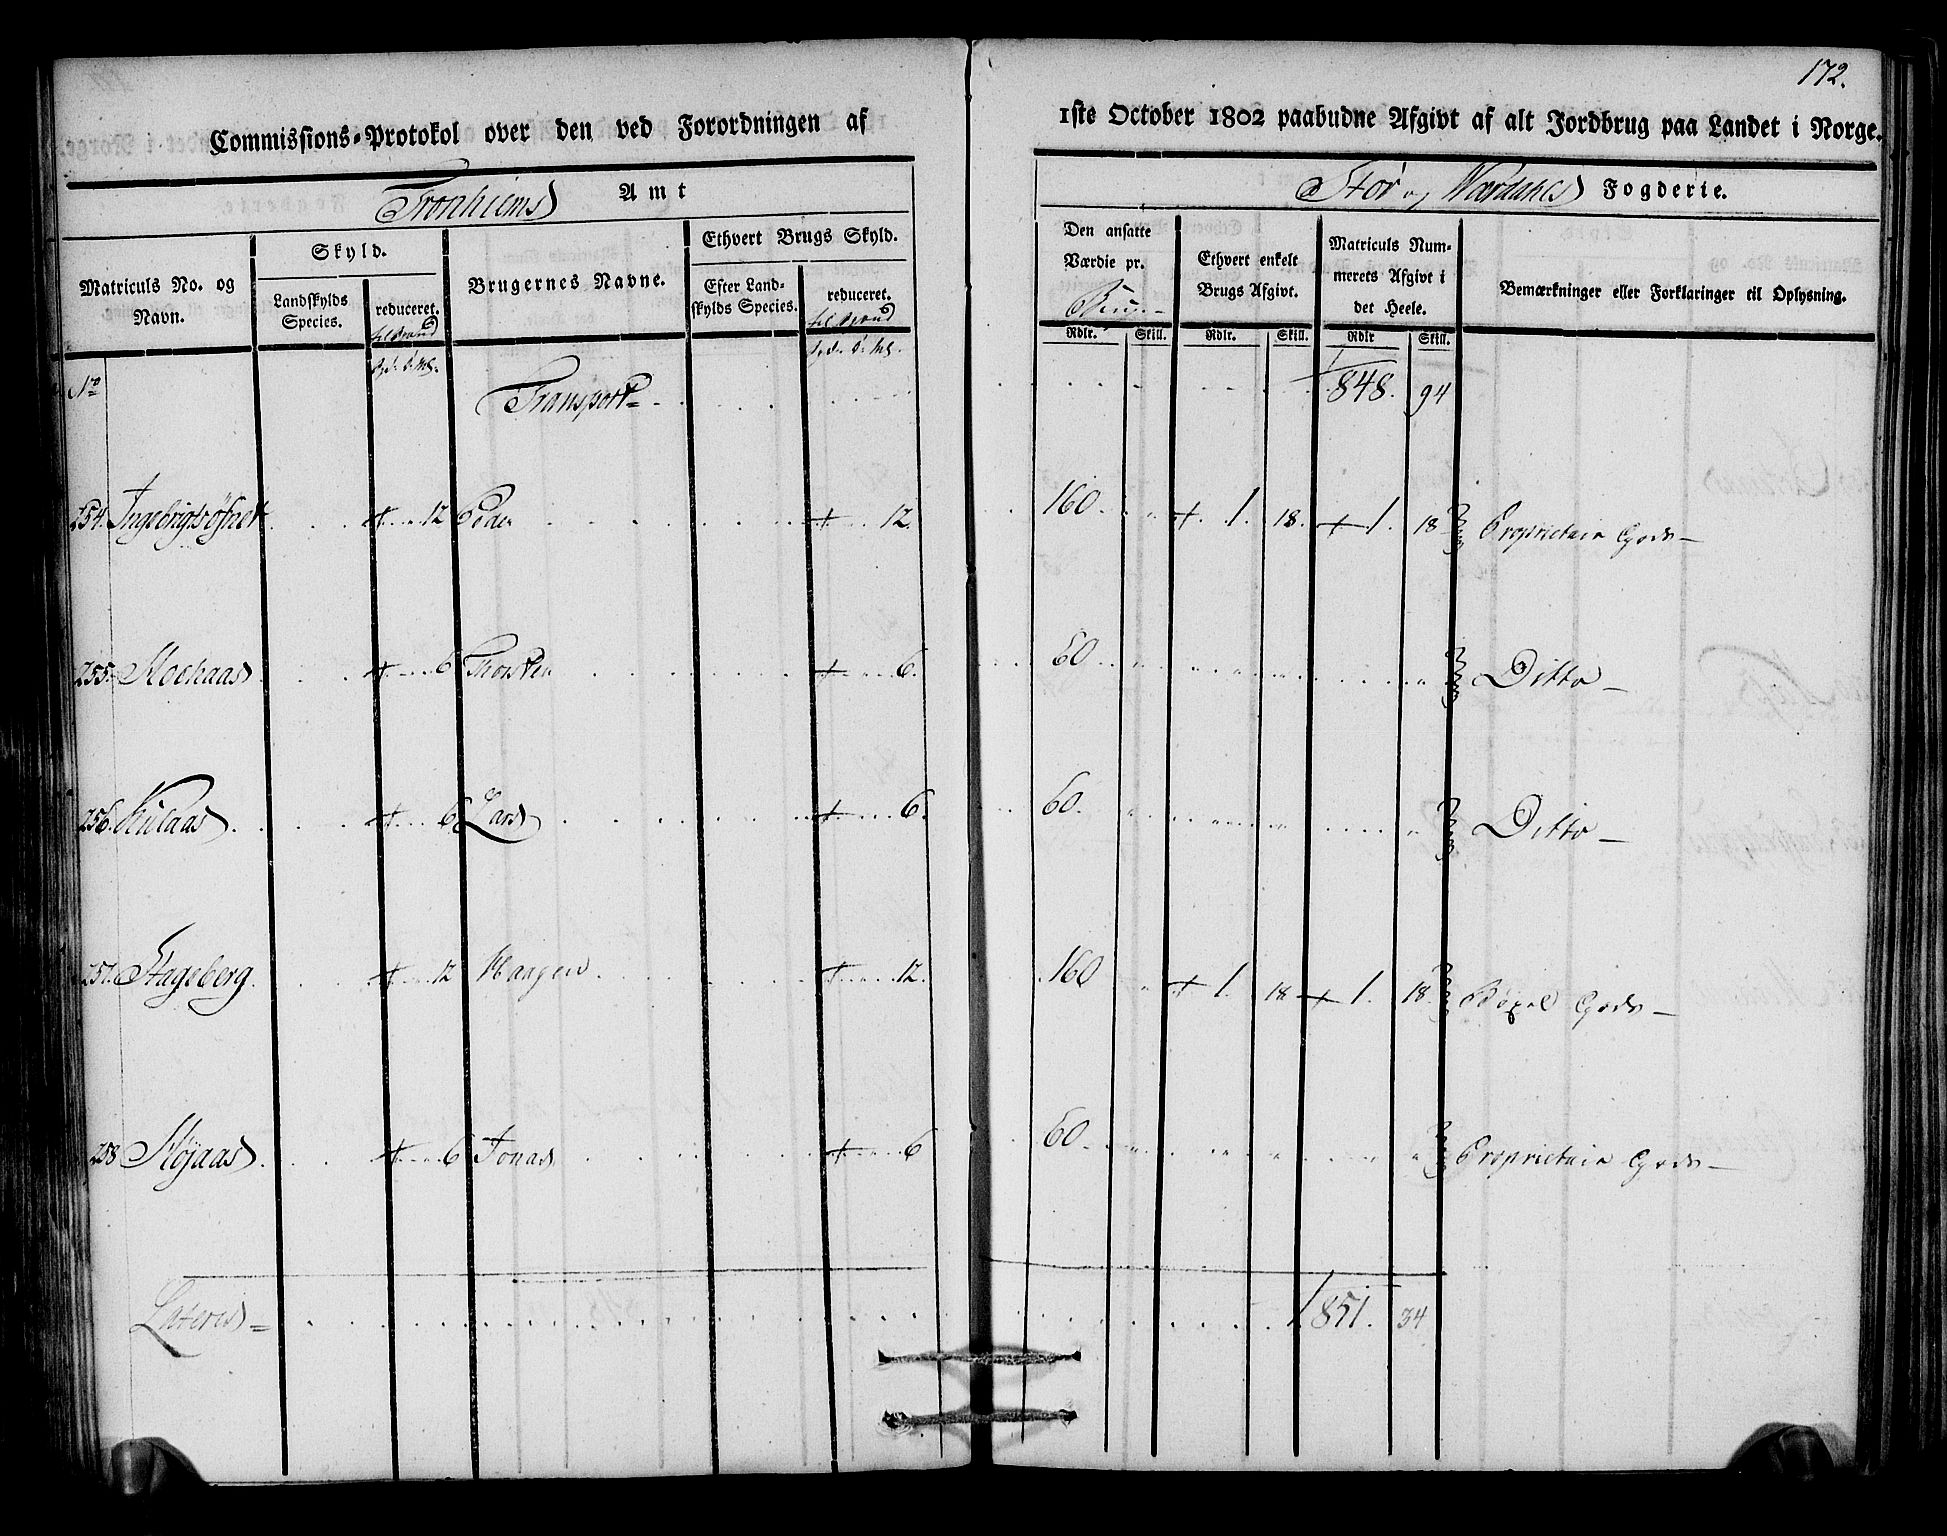 172.
Commissions-Protokol over den ved Forordningen af 1ste October 1802 paabudne Afgivt af alt Jordbrug paa Landet i Norge.
Tronhiems Amt
Stør og Værdahls Fogderie.
Matriculs No. og Navn.
Skyld.
Landskylds Species.
reduceret.
Brugernes Navne.
Ethvert Brugs Skyld.
Efter Landskylds Species.
reduceret.
Den ansatte Værdie pr. Brug
Rdlr. Skill.
Ethvert enkelt Brugs Afgivt.
Rdlr. Skill.
Matriculs Nummerets Afgivt i det Heele.
Rdlr Skill.
Bemærkninger eller Forklaringer til Oplysning.
No Transport 1848. 94
254. Ingebrigtsøfnet 12 Peder 12 160 1. 18. 1. 18 Proprietair Gods
255. Moehaas 6 Thorsten 6. 60 Ditto
256. Kulaas 6 Lars 6. 60. Ditto
257. Stageberg 12 Haagen 12. 160 1. 18 1. 18 Bøxel Gods
258 Mojaas 6 Jonas 6 60 Proprietair Gods
Lateris 1851. 34